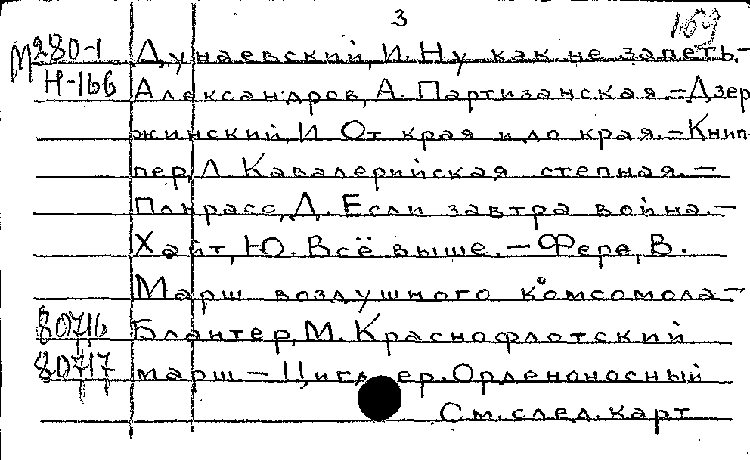 3 169
М280-1 Дунаевский, И. Ну как не запеть.-
Н-166 Александров, А. Партизанская.-Дзер
жинский, И От края и до края.-Книп-
пер, Л. Кавалерийская степная.-
Покрасс, Д. Если завтра война.-
Хайт, Ю. Всё выше.-Фере, В.
Марш воздушного комсомола-
80716 Блантер, М. Краснофлотский
80717 марш-Циглер. Орденоносный
См. след. карт